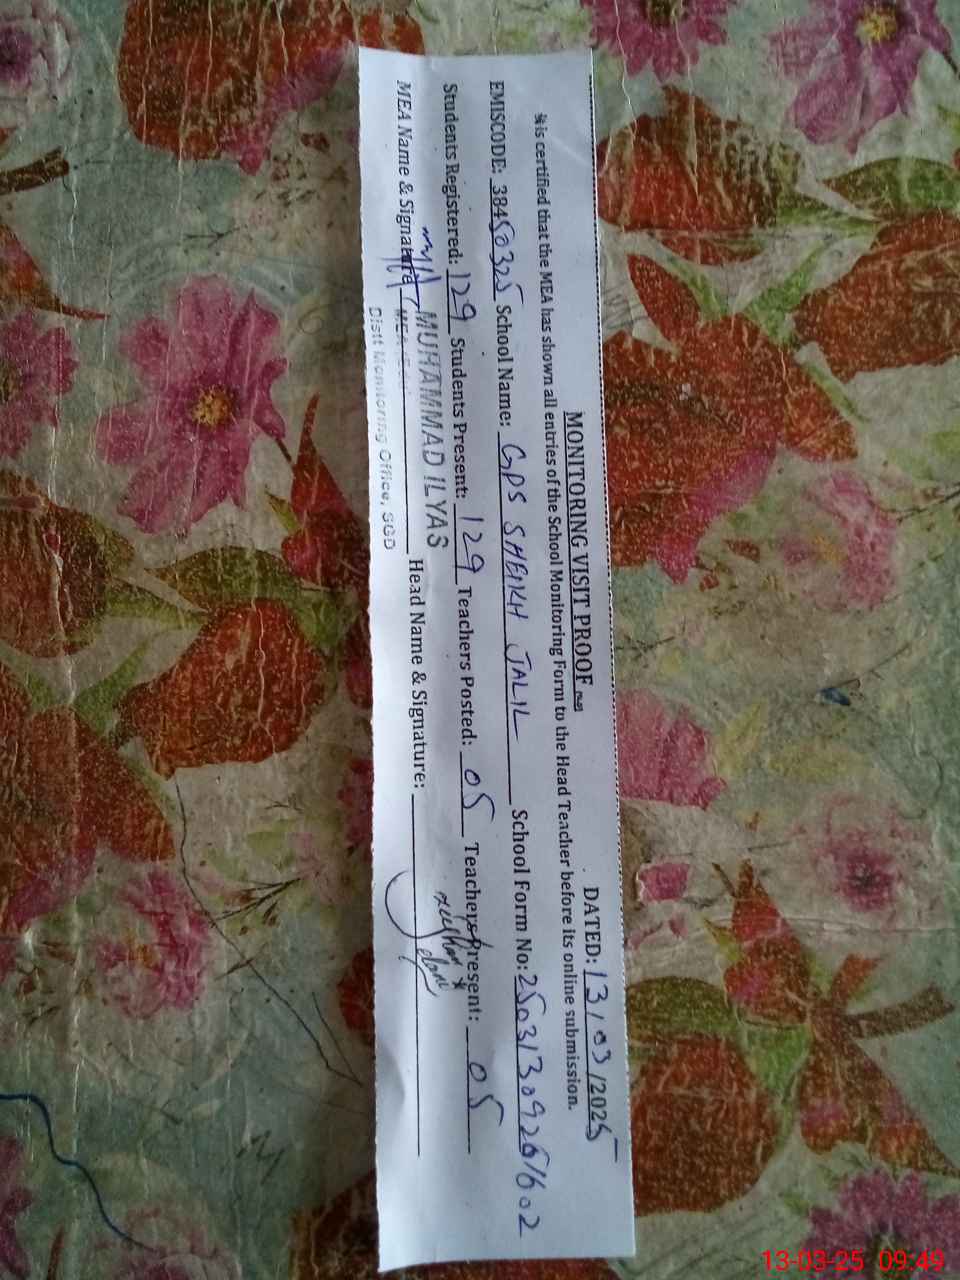 MONITORING VISIT PROOF
DATED: 13/03/2025
It is certified that the MEA has shown all entries of the School Monitoring Form to the Head Teacher before its online submission.
EMISCODE: 38450325 School Name: GPS SHEIKH JALIL School Form No: 25031309261602
Students Registered: 129 Students Present: 129 Teachers Posted: 05 Teachers Present: 05
MUHAMMAD ILYAS
MEA Name & Signature Head Name & Signature:
Distt Monitoring Office, SGD
13-03-25 09:49